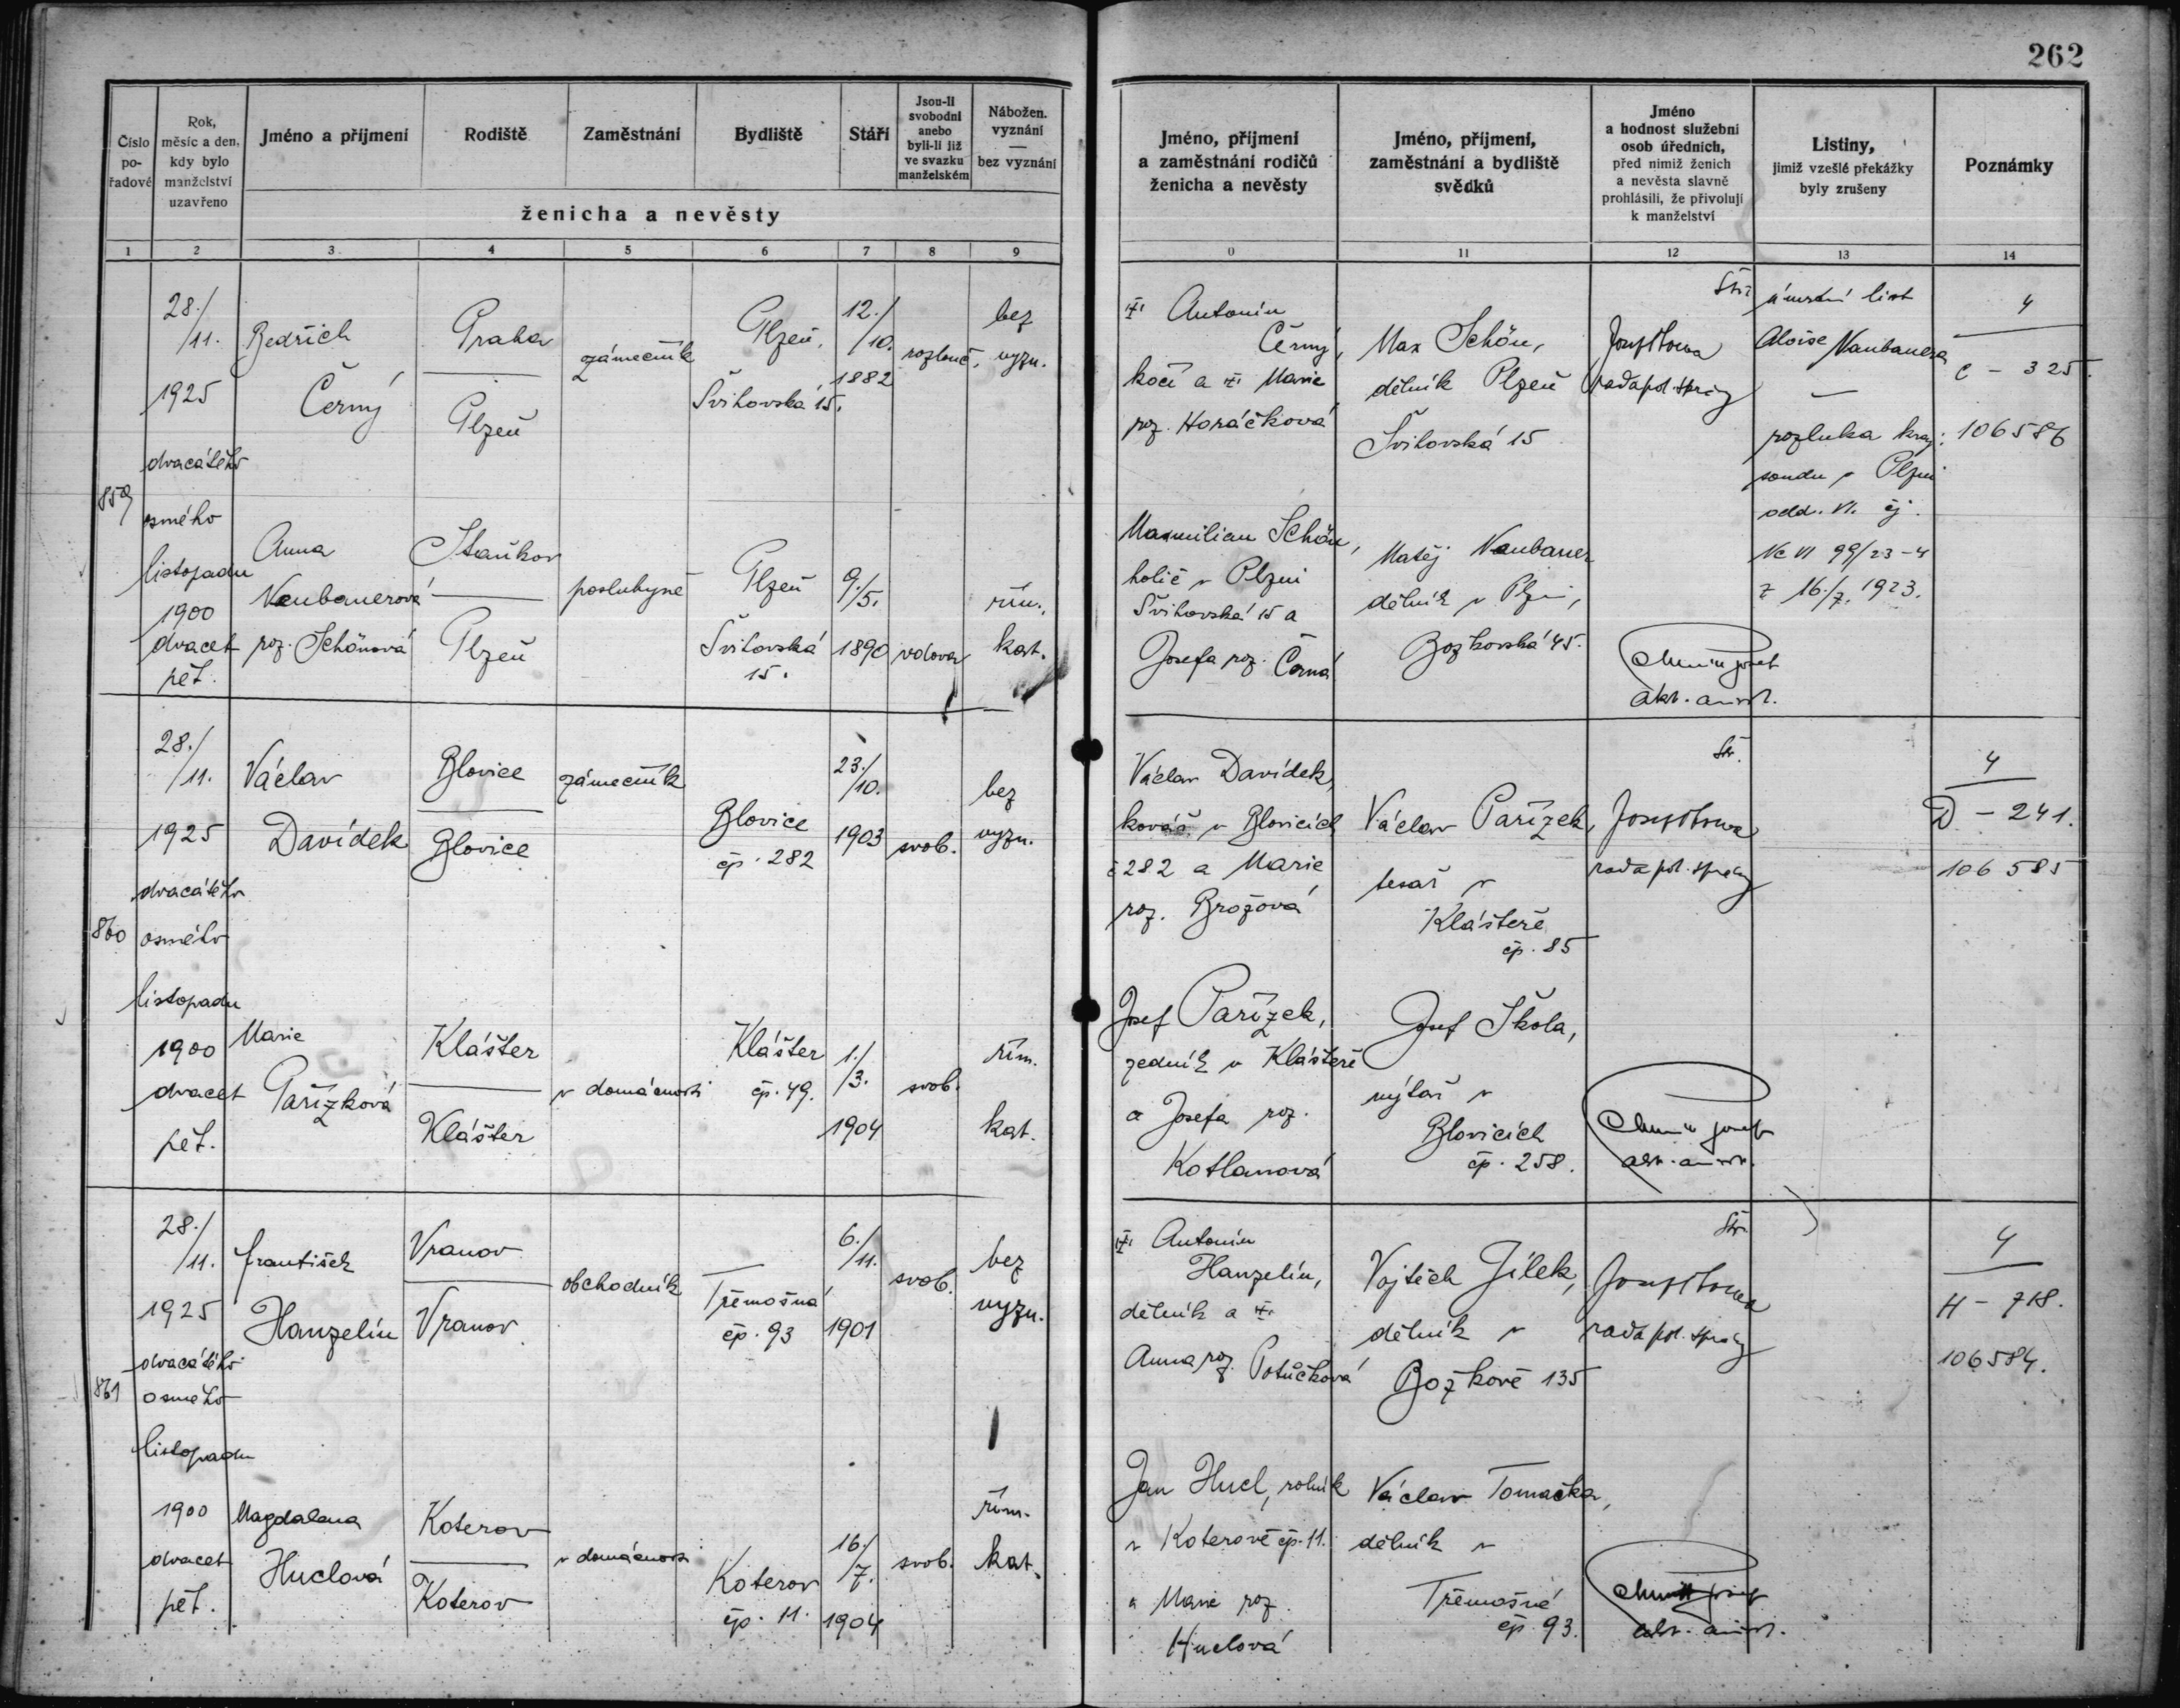 262
Číslo
po-
řadové
Rok,
měsíc a den,
kdy bylo
manželství
uzavřeno
Jméno a příjmení
Rodiště
Zaměstnání
Bydliště
Stáří
Jsou-li
svobodni
anebo
byli-li již
ve svazku
manželském
Nábožen.
vyznání
—
bez vyznání
ženicha a nevěsty
Jméno, příjmení
a zaměstnání rodičů
ženicha a nevěsty
Jméno, příjmení,
zaměstnání a bydliště
svědků
Jméno
a hodnost služební
osob úředních,
před nimiž ženich
a nevěsta slavně
prohlásili, že přivolují
k manželství
Listiny,
jimiž vzešlé překážky
byly zrušeny
Poznámky
1 2 3 4 5 6 7 8 9 0 11 12 13 14
859
28./
/11.
1925
dvacátého
osmého
listopadu
1900
dvacet
pět.
Bedřich
Černý
Praha
Plzeň
zámečník
Plzeň,
Švihovská 15.
12./
/10.
1882
rozlouč.
bez
vyzn.
Antonín
Černý,
kočí a Marie
roz. Horáčková
Max Schön,
dělník Plzeň
Švihovská 15
rada pol. správy
úmrtní list
Aloise Naubauera
—
rozluka kraj.
soudu v Plzni
odd. VI. čj.
Nc VI 99/23-4
z 16./7. 1923.
4
C - 325.
106586
Anna
Naubauerová
roz. Schönová
Staňkov
Plzeň
posluhyně
Plzeň
Švihovská
15.
9./
/5.
1890
vdova
řím.
kat.
Maxmilian Schön,
holič v Plzni
Švihovská 15 a
Josefa roz. Černá
Matěj Naubauer
dělník v Plzni,
Bozkovská 45.
860
28./
/11.
1925
dvacátého
osmého
listopadu
1900
dvacet
pět.
Václav
Davídek
Blovice
Blovice
zámečník
Blovice
čp. 282
23./
/10.
1903
svob.
bez
vyzn.
Václav Davídek,
kovář v Blovicích
č 282 a Marie
roz. Brožová
Václav Pařízek,
tesař v
Klášteře
čp. 85
rada pol. správy
4
D - 241.
106585
Marie
Pařízková
Klášter
Klášter
v domácnosti
Klášter
čp. 49.
1./
/3.
1904
svob.
řím.
kat.
Josef Pařízek,
zedník v Klášteře
a Josefa roz.
Kotlanová
Josef Škola,
mýtař v
Blovicích
čp. 258.
861
28./
/11.
1925
dvacátého
osmého
listopadu
1900
dvacet
pět.
František
Hanzelín
Vranov
Vranov
obchodník
Třemošná
čp. 93
6./
/11.
1901
svob.
bez
vyzn.
Antonín
Hanzelín,
dělník a
Anna roz. Potůčková
Vojtěch Jílek,
dělník v
Božkově 135
rada pol. správy
4
H - 718.
106584.
Magdalena
Huclová
Koterov
Koterov
v domácnosti
Koterov
čp. 11.
16./
/7.
1904
svob.
řím.
kat.
Jan Hucl, rolník
v Koterově čp. 11.
a Marie roz.
Huclová
Václav Tomaška,
dělník v
Třemošné
čp. 93.